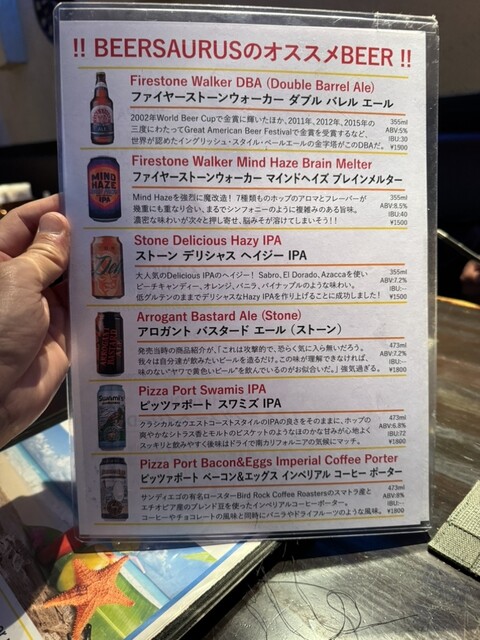 !! BEERSAURUSのオススメBEER !!
Firestone Walker DBA (Double Barrel Ale)
ファイヤーストーンウォーカー ダブル バレル エール
2002年World Beer Cupで金賞に輝いたほか、2011年、2012年、2015年の
三度にわたってGreat American Beer Festivalで金賞を受賞するなど、
世界が認めたイングリッシュ・スタイル・ペールエールの金字塔がこのDBAだ。
355ml
ABV:5%
IBU:30
¥1900
Firestone Walker Mind Haze Brain Melter
ファイヤーストーンウォーカー マインドヘイズ ブレインメルター
Mind Hazeを強烈に魔改造！7種類ものホップのアロマとフレーバーが
幾重にも重なり合い、まるでシンフォニーのように複雑みのある旨味。
濃密な味わいが次々と押し寄せ、脳みそが溶けてしまいそう！！
355ml
ABV:8.5%
IBU:40
¥1500
MIND HAZE
IPA
Stone Delicious Hazy IPA
ストーン デリシャス ヘイジー IPA
大人気のDelicious IPAのヘイジー！Sabro, El Dorado, Azaccaを使い
ピーチキャンディー、オレンジ、バニラ、パイナップルのような味わい。
低グルテンのままでデリシャスなHazy IPAを作り上げることに成功しました！
355ml
ABV:7.2%
IBU:--
¥1500
Arrogant Bastard Ale (Stone)
アロガント バスタード エール（ストーン）
発売当時の商品紹介が、「これは攻撃的で、恐らく気に入らないだろう。
我々は自分達が飲みたいビールを造るだけ。この味が理解できなければ、
味のない"ヤワで黄色いビール"を飲んでいるのがお似合いだ。」強気過ぎる。
473ml
ABV:7.2%
IBU:--
¥1800
Pizza Port Swamis IPA
ピッツァポート スワミズ IPA
クラシカルなウエストコーストスタイルのIPAの良さをそのままに、ホップの
爽やかなシトラス香とモルトのビスケットのようなほのかな甘みが心地よく
スッキリと飲みやすく後味はドライで南カリフォルニアの気候にマッチ。
473ml
ABV:6.8%
IBU:72
¥1800
Pizza Port Bacon&Eggs Imperial Coffee Porter
ピッツァポート ベーコン&エッグス インペリアル コーヒー ポーター
サンディエゴの有名ロースターBird Rock Coffee Roastersのスマトラ産と
エチオピア産のブレンド豆を使ったインペリアルコーヒーポーター。
コーヒーやチョコレートの風味と同時にバニラやドライフルーツのような風味。
473ml
ABV:8%
IBU:--
¥1800